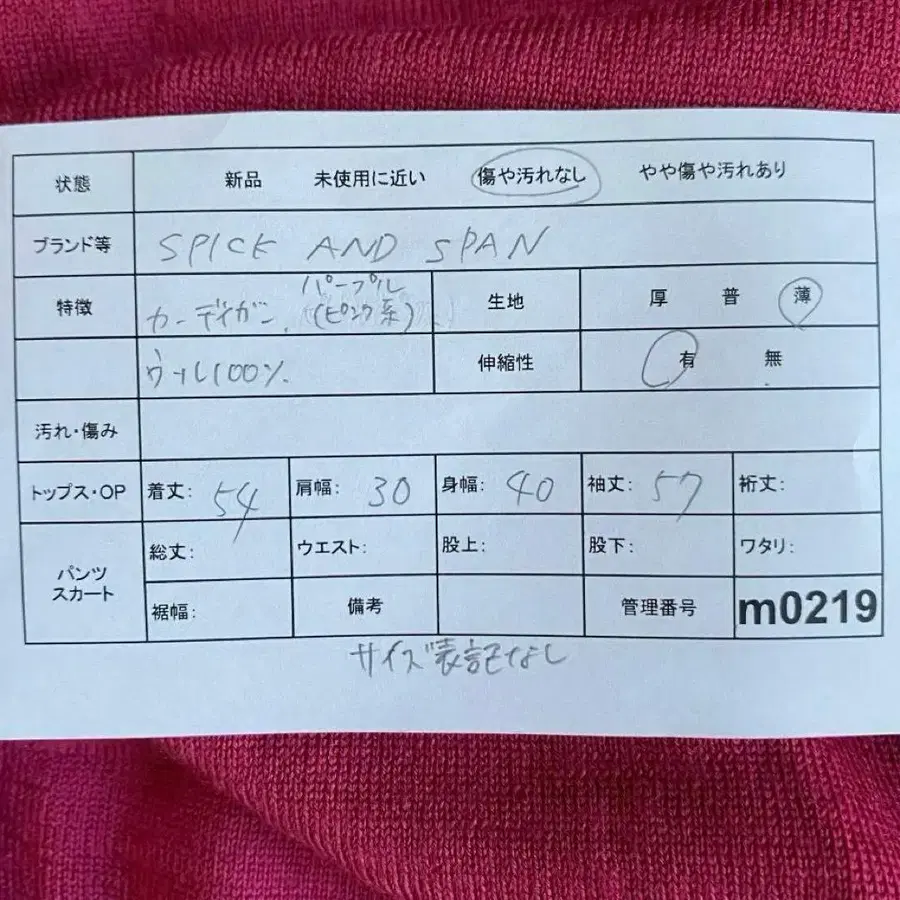 状態 新品 未使用に近い 傷や汚れなし やや傷や汚れあり
ブランド等 SPICK AND SPAN
特徴 カーディガン、パープル(ピンク系) 生地 厚 普 薄
ウール100% 伸縮性 有 無
汚れ・傷み
トップス・OP 着丈: 54 肩幅: 30 身幅: 40 袖丈: 57 裄丈:
パンツ スカート 総丈: ウエスト: 股上: 股下: ワタリ:
裾幅: 備考 管理番号 m0219
サイズ表記なし